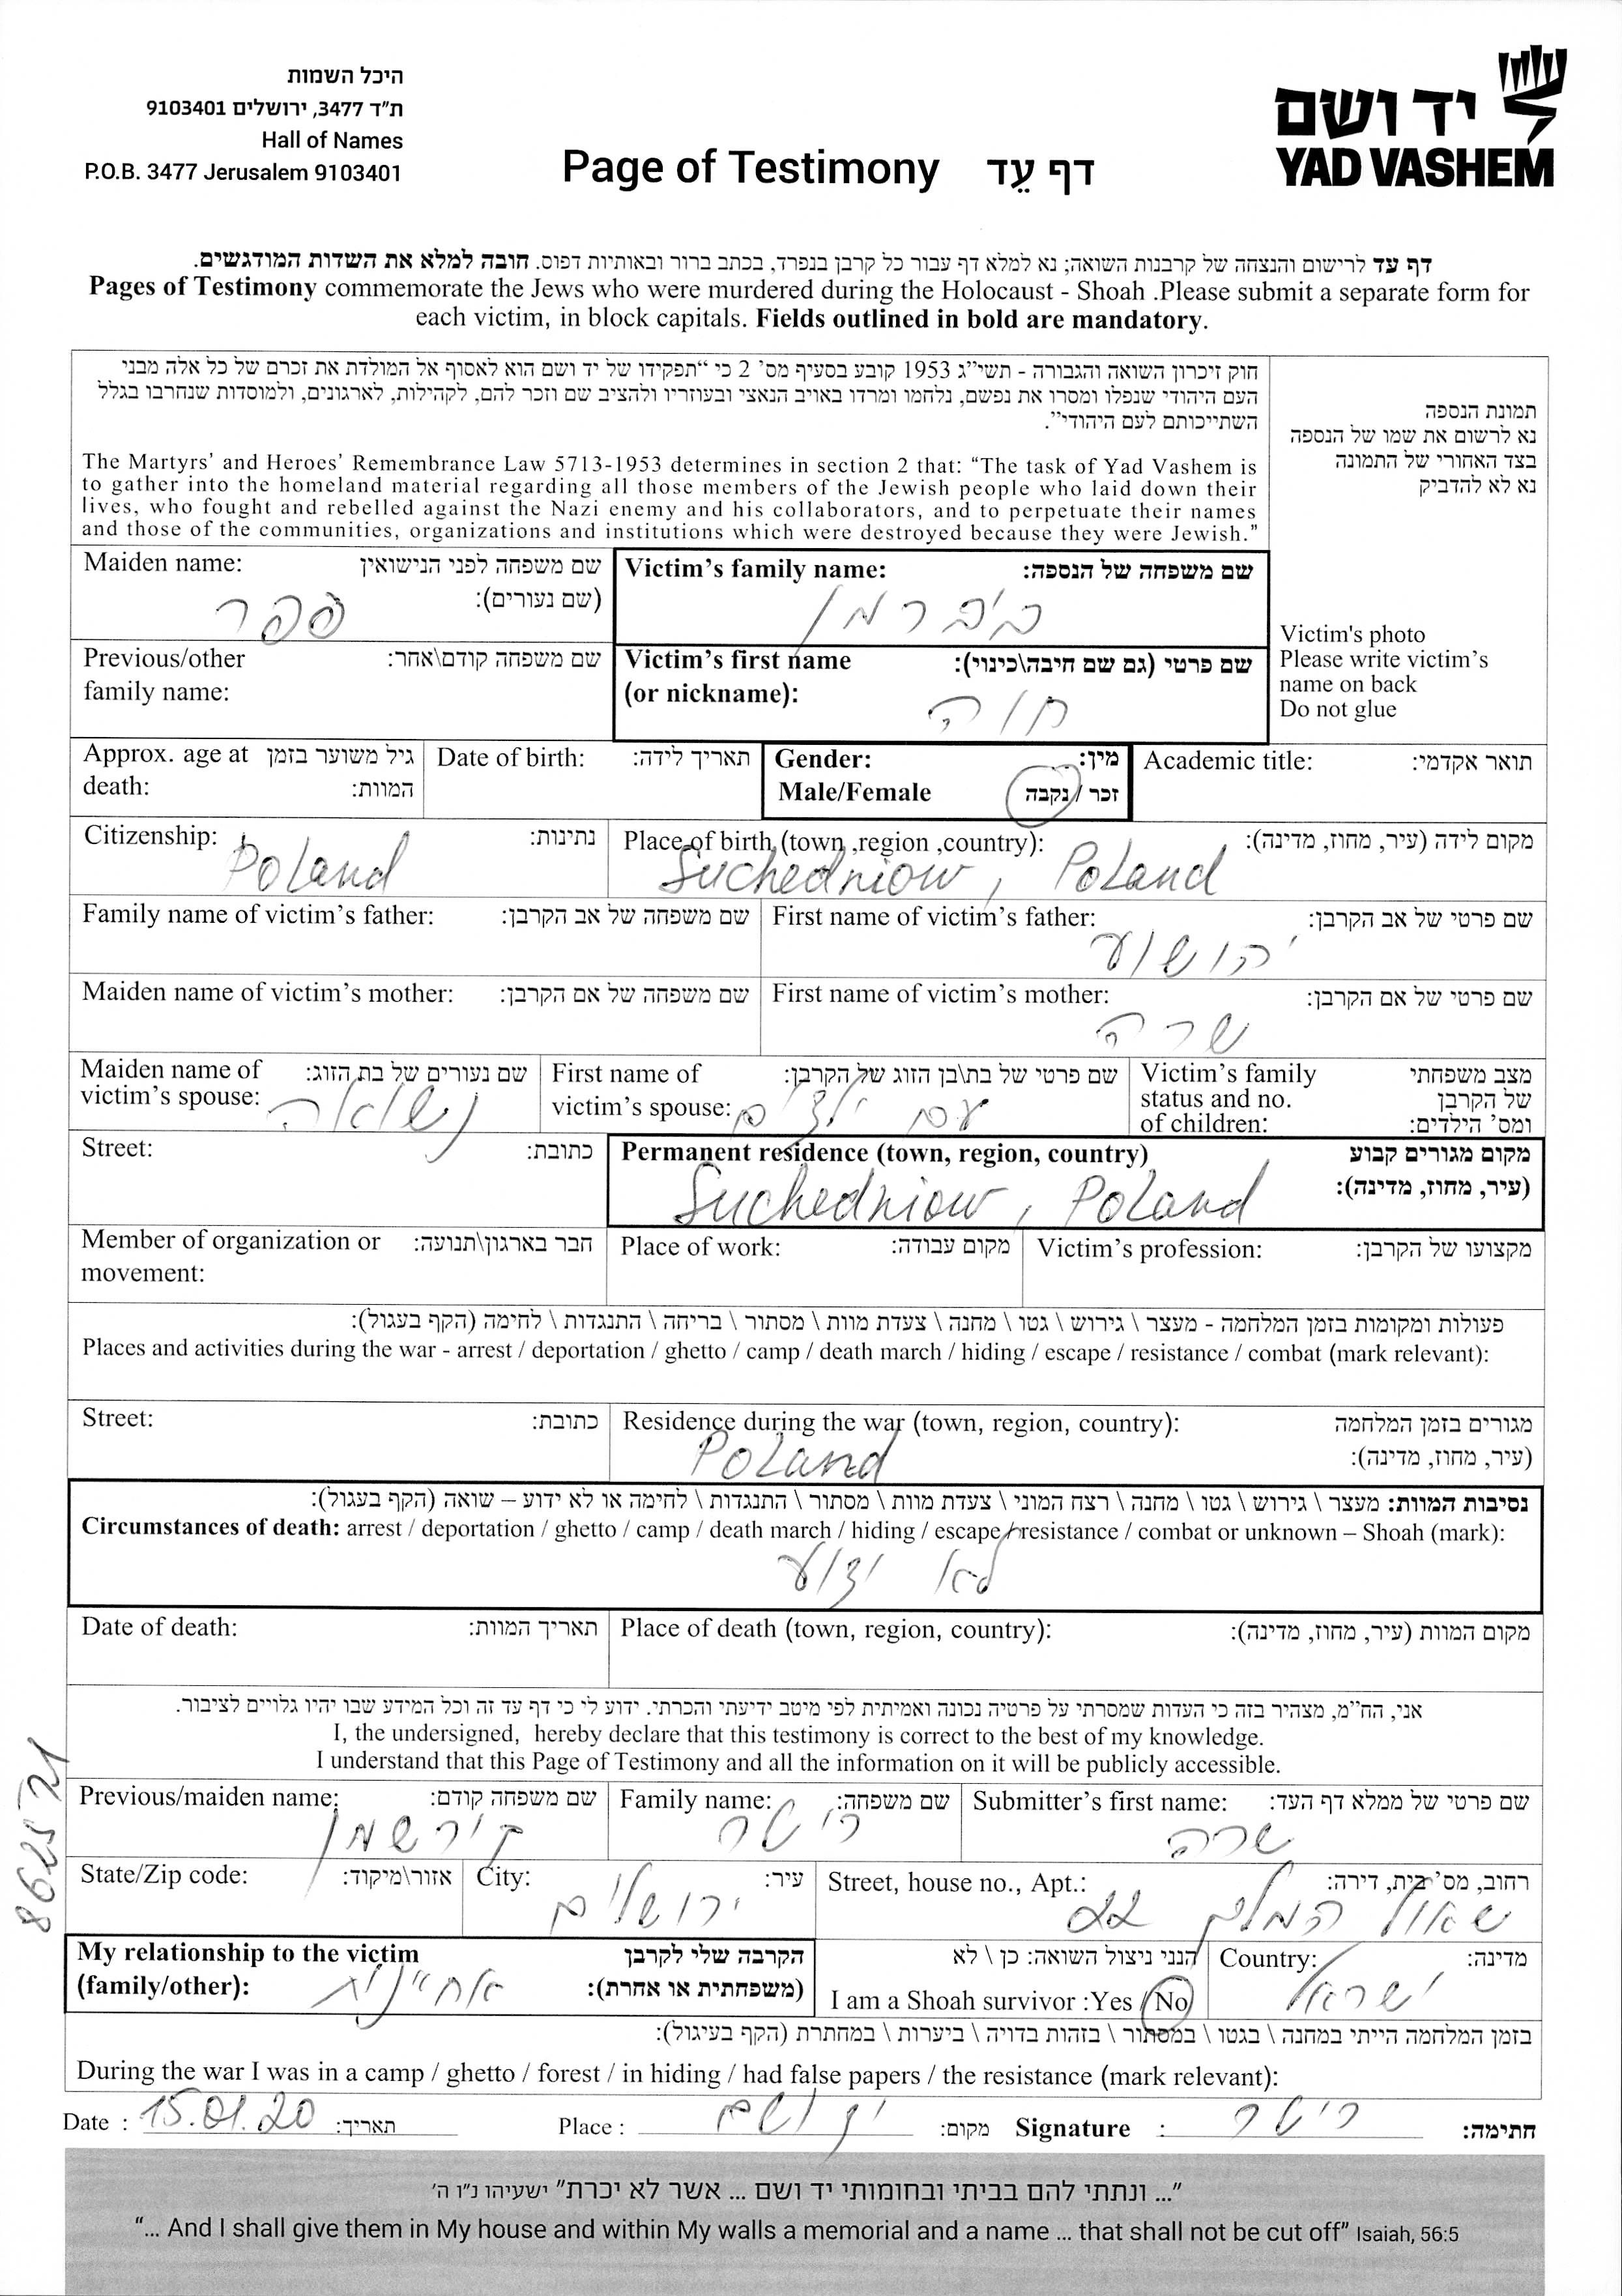 היכל השמות
ת"ד 3477, ירושלים 9103401
Hall of Names
P.O.B. 3477 Jerusalem 9103401
Page of Testimony דף עֵד
יד ושם
YAD VASHEM
דף עד לרישום והנצחה של קרבנות השואה; נא למלא דף עבור כל קרבן בנפרד, בכתב ברור ובאותיות דפוס. חובה למלא את השדות המודגשים.
Pages of Testimony commemorate the Jews who were murdered during the Holocaust - Shoah .Please submit a separate form for
each victim, in block capitals. Fields outlined in bold are mandatory.
חוק זיכרון השואה והגבורה - תשי"ג 1953 קובע בסעיף מס' 2 כי "תפקידו של יד ושם הוא לאסוף אל המולדת את זכרם של כל אלה מבני
העם היהודי שנפלו ומסרו את נפשם, נלחמו ומרדו באויב הנאצי ובעוזריו ולהציב שם וזכר להם, לקהילות, לארגונים, ולמוסדות שנחרבו בגלל
השתייכותם לעם היהודי".
The Martyrs' and Heroes' Remembrance Law 5713-1953 determines in section 2 that: "The task of Yad Vashem is
to gather into the homeland material regarding all those members of the Jewish people who laid down their
lives, who fought and rebelled against the Nazi enemy and his collaborators, and to perpetuate their names
and those of the communities, organizations and institutions which were destroyed because they were Jewish."
תמונת הנספה
נא לרשום את שמו של הנספה
בצד האחורי של התמונה
נא לא להדביק
Victim's photo
Please write victim's
name on back
Do not glue
Victim's family name: שם משפחה של הנספה:
ביברמן
Maiden name: שם משפחה לפני הנישואין
(שם נעורים):
פפר
Victim's first name שם פרטי (גם שם חיבה\כינוי):
(or nickname):
חוה
Previous/other שם משפחה קודם\אחר:
family name:
Approx. age at גיל משוער בזמן
death: המוות:
Date of birth: תאריך לידה:
Gender: מין:
Male/Female זכר / נקבה
Academic title: תואר אקדמי:
Citizenship: נתינות:
Poland
Place of birth (town ,region ,country): מקום לידה (עיר, מחוז, מדינה):
Suchedniow, Poland
Family name of victim's father: שם משפחה של אב הקרבן:
First name of victim's father: שם פרטי של אב הקרבן:
יהושוע
Maiden name of victim's mother: שם משפחה של אם הקרבן:
First name of victim's mother: שם פרטי של אם הקרבן:
שרה
Maiden name of שם נעורים של בת הזוג:
victim's spouse:
First name of שם פרטי של בת\בן הזוג של הקרבן:
victim's spouse:
Victim's family מצב משפחתי
status and no. של הקרבן
of children: ומס' הילדים:
נשואה עם ילדים
Street: כתובת:
Permanent residence (town, region, country) מקום מגורים קבוע
(עיר, מחוז, מדינה):
Suchedniow, Poland
Member of organization or חבר בארגון\תנועה:
movement:
Place of work: מקום עבודה:
Victim's profession: מקצועו של הקרבן:
פעולות ומקומות בזמן המלחמה - מעצר \ גירוש \ גטו \ מחנה \ צעדת מוות \ מסתור \ בריחה \ התנגדות \ לחימה (הקף בעגול):
Places and activities during the war - arrest / deportation / ghetto / camp / death march / hiding / escape / resistance / combat (mark relevant):
Street: כתובת:
Residence during the war (town, region, country): מגורים בזמן המלחמה
(עיר, מחוז, מדינה):
Poland
נסיבות המוות: מעצר \ גירוש \ גטו \ מחנה \ רצח המוני \ צעדת מוות \ מסתור \ התנגדות \ לחימה או לא ידוע – שואה (הקף בעגול):
Circumstances of death: arrest / deportation / ghetto / camp / death march / hiding / escape / resistance / combat or unknown – Shoah (mark):
לא ידוע
Date of death: תאריך המוות:
Place of death (town, region, country): מקום המוות (עיר, מחוז, מדינה):
אני, הח"מ, מצהיר בזה כי העדות שמסרתי על פרטיה נכונה ואמיתית לפי מיטב ידיעתי והכרתי. ידוע לי כי דף עד זה וכל המידע שבו יהיו גלויים לציבור.
I, the undersigned, hereby declare that this testimony is correct to the best of my knowledge.
I understand that this Page of Testimony and all the information on it will be publicly accessible.
Previous/maiden name: שם משפחה קודם:
קירשמן
Family name: שם משפחה:
ריטר
Submitter's first name: שם פרטי של ממלא דף העד:
שרה
State/Zip code: אזור\מיקוד:
City: עיר:
ירושלים
Street, house no., Apt.: רחוב, מס' בית, דירה:
שאול המלך 22
My relationship to the victim הקרבה שלי לקרבן
(family/other): (משפחתית או אחרת):
אחיינית
הנני ניצול השואה: כן \ לא
I am a Shoah survivor :Yes / No
Country: מדינה:
ישראל
בזמן המלחמה הייתי במחנה \ בגטו \ במסתור \ בזהות בדויה \ ביערות \ במחתרת (הקף בעיגול):
During the war I was in a camp / ghetto / forest / in hiding / had false papers / the resistance (mark relevant):
Date : 15.01.20 תאריך:
Place : יד ושם מקום:
Signature : ריטר חתימה:
"... ונתתי להם בביתי ובחומותי יד ושם ... אשר לא יכרת" ישעיהו נ"ו ה'
"... And I shall give them in My house and within My walls a memorial and a name ... that shall not be cut off" Isaiah, 56:5